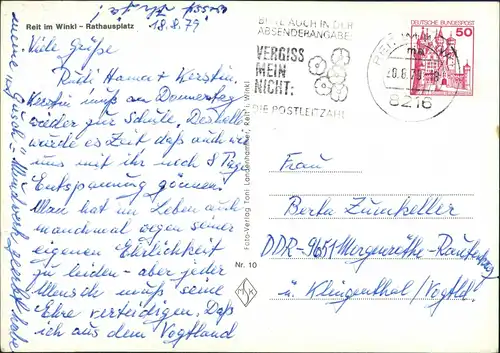 Reit im Winkl - Rathausplatz
18.8.79
Viele Grüße
Rudi Hanna + Kerstin,
Kerstin muß am Donnerstag
wieder zur Schule. Deshalb
wurde es Zeit daß auch wir
uns mit ihr noch 8 Tage
Entspannung gönnen.
Man hat im Leben auch
manchmal wegen seiner
eigenen Ehrlichkeit
zu leiden - aber jeder
Mensch muß seine
Ehre verteidigen. Daß
ich aus dem Vogtland
meine
Mundwerk geerbt habe
Foto-Verlag Toni Landenhammer, Reit i. Winkl
Nr. 10
BITTE AUCH IN DER
ABSENDERANGABE
VERGISS
MEIN
NICHT:
DIE POSTLEITZAHL
REIT
20.8.79-18
8216
DEUTSCHE BUNDESPOST
50
Frau
Berta Zumkeller
DDR-9651 Morgenröthe-Rautenkranz
ü. Klingenthal/Vogtld.